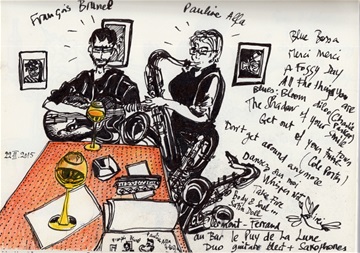 François Brunel
Pauline Alla
Blue Bossa
Merci Merci
A Foggy Day
All the things you are
Blues: Bloom
The Shadow of your Smile
Get out of your
(Cole Porter)
Don't get around anymore
Dansez sur moi
Take Five
Body & Soul
22 2015
Clermont-Ferrand
au Bar le Puy de La Lune
Duo guitare élect + Saxophones